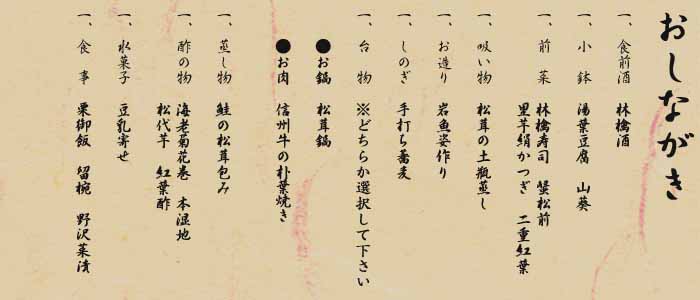 おしながき
一、食前酒 林檎酒
一、小鉢 湯葉豆腐 山葵
一、前菜 林檎寿司 蟹松前
里芋絹かつぎ 二重紅葉
一、吸い物 松茸の土瓶蒸し
一、お造り 岩魚姿作り
一、しのぎ 手打ち蕎麦
一、台物 ※どちらか選択して下さい
●お鍋 松茸鍋
●お肉 信州牛の朴葉焼き
一、蒸し物 鮭の松茸包み
一、酢の物 海老菊花巻 本湿地
松代芋 紅葉酢
一、水菓子 豆乳寄せ
一、食事 栗御飯 留椀 野沢菜漬